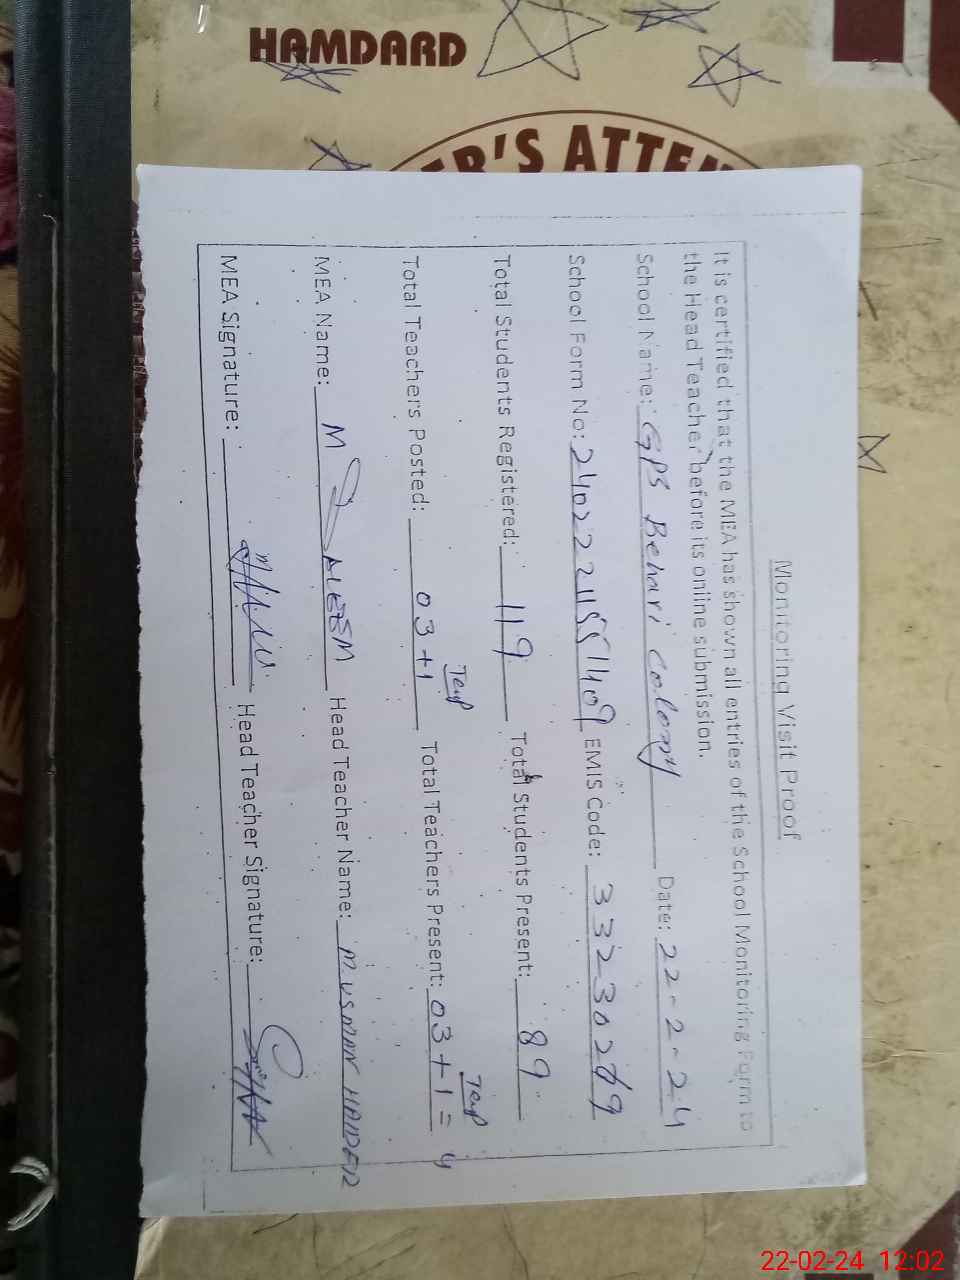 HAMDARD
ER'S ATTEN
Monitoring Visit Proof
It is certified that the MEA has shown all entries of the School Monitoring Form to
the Head Teacher before its online submission.
School Name: GPS Behari colony Date: 22-2-24
School Form No: EMIS Code: 33230269
Total Students Registered: 119 Total Students Present: 89
Temp Temp
Total Teachers Posted: 03+1 Total Teachers Present: 03+1=4
MEA Name: M ALEEM Head Teacher Name: M USMAN HAIDER
MEA Signature: Head Teacher Signature:
22-02-24 12:02